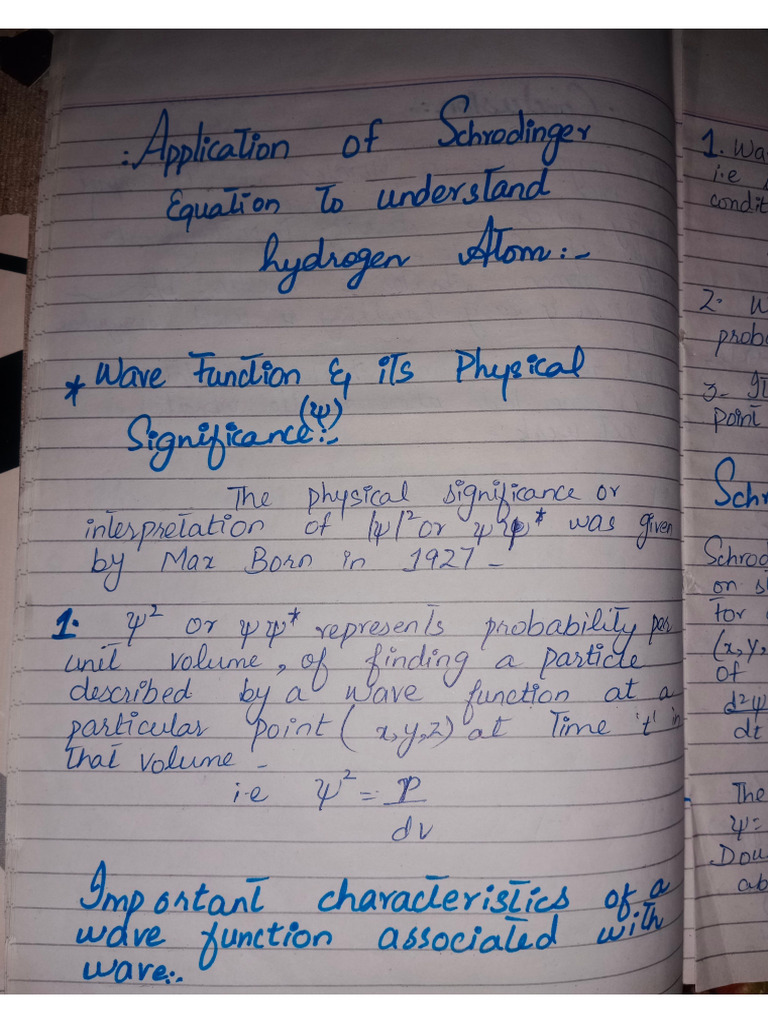 :Application of Schrodinger
Equation To understand
hydrogen Atom:-
* Wave Function & its Physical
Significance:- (ψ)
The physical significance or
interpretation of |ψ|² or ψψ* was given
by Max Born in 1927 -
1. ψ² or ψψ* represents probability per
unit volume, of finding a particle
described by a wave function at a
particular point (x,y,z) at Time 't' in
that volume -
i.e ψ² = P
dv
Important characteristics of a
wave function associated with
wave:-
1. Wa
i.e
condit
2. W
proba
3-
point
Schr
Schrod
on s
for
(x,y,
of
d²ψ
dt
The
ψ=
Dou
ab